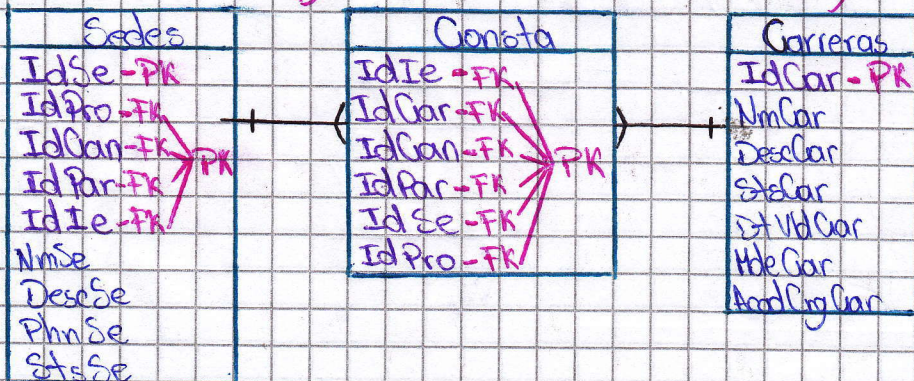 Sedes
IdSe-PK
IdPro-FK
IdCan-FK
IdPar-FK
IdIe-FK
PK
NmSe
DescSe
PhnSe
StsSe
Consta
IdIe-FK
IdCar-FK
IdCan-FK
IdPar-FK
IdSe-FK
IdPro-FK
PK
Carreras
IdCar-PK
NmCar
DescCar
StsCar
MdeCar
AcadCrgCar